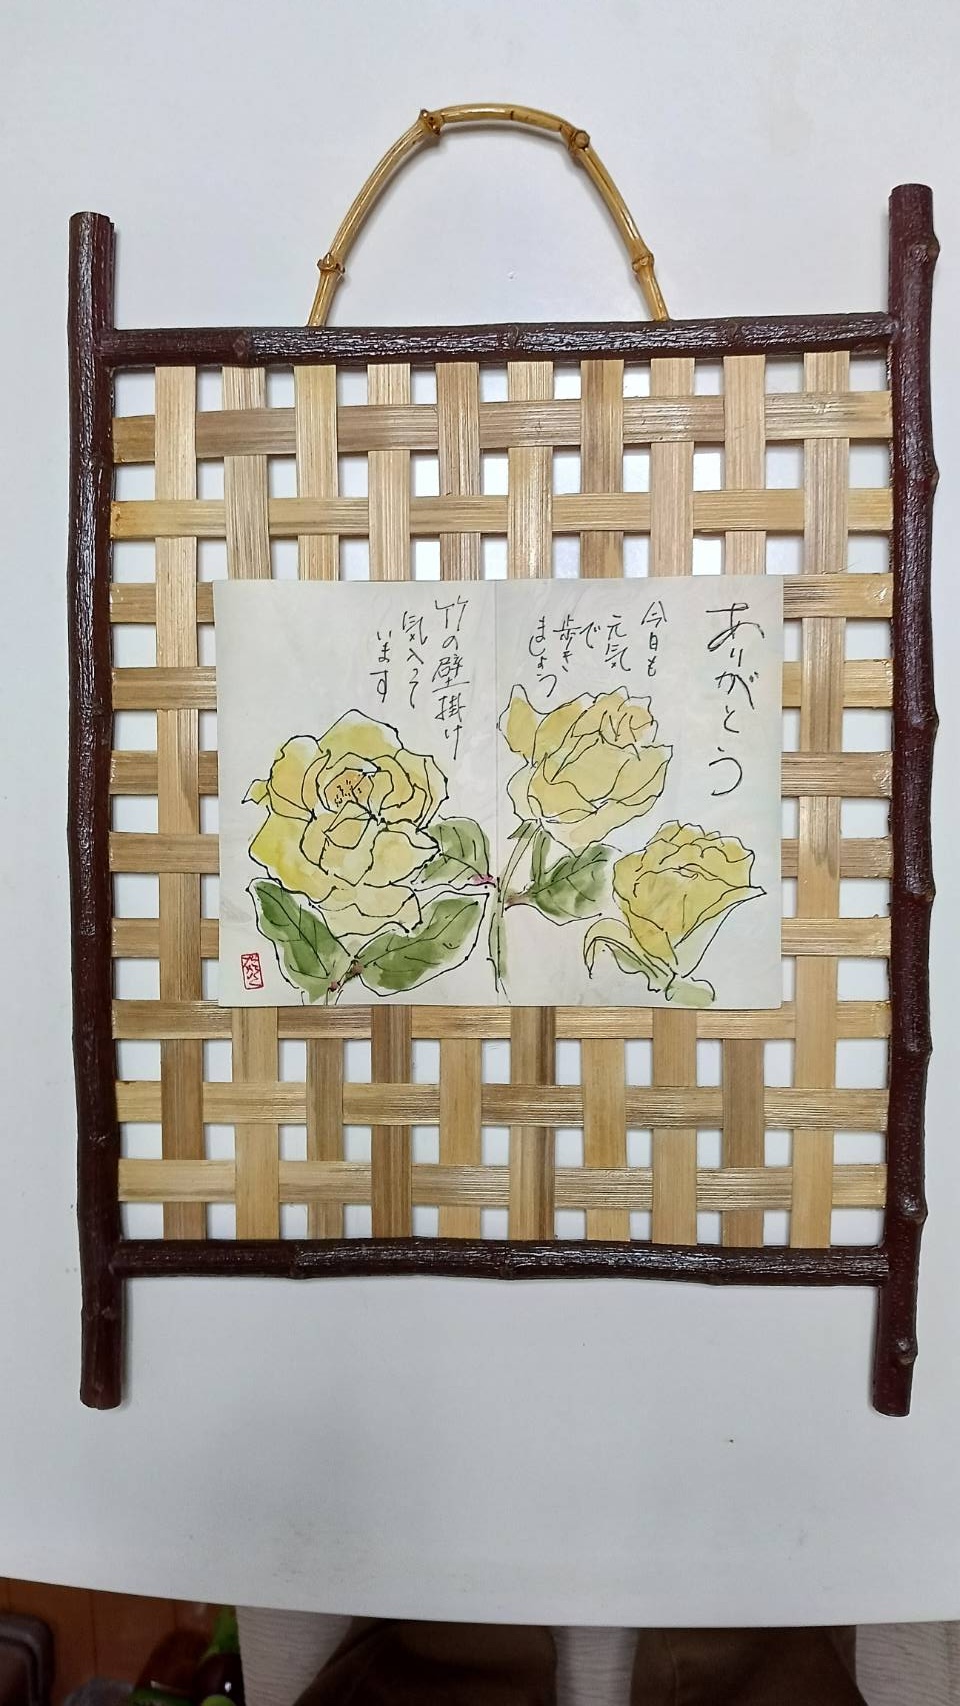 ありがとう
今日も
元気
で
歩き
ましょう
竹の壁掛け
気入って
います